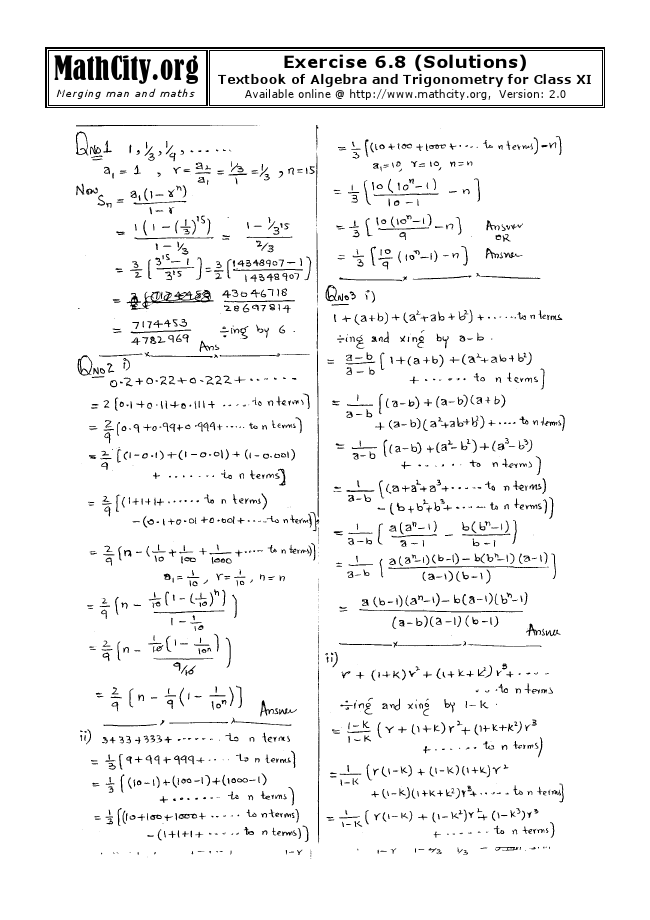 MathCity.org
Merging man and maths
Exercise 6.8 (Solutions)
Textbook of Algebra and Trigonometry for Class XI
Available online @ http://www.mathcity.org, Version: 2.0
QNo1 1, 1/3, 1/9, ......
a₁ = 1 , r = a₂/a₁ = (1/3)/1 = 1/3 , n=15
Now Sₙ = a₁(1-rⁿ)/(1-r)
= 1(1-(1/3)¹⁵)/(1-1/3) = (1-1/3¹⁵)/(2/3)
= 3/2 [(3¹⁵-1)/3¹⁵] = 3/2 [(14348907-1)/14348907]
= 43046718/28697814
= 7174453/4782969 ÷ing by 6.
Ans
QNo2 i)
0.2+0.22+0.222+......
= 2[0.1+0.11+0.111+ ..... to n terms]
= 2/9 [0.9+0.99+0.999+..... to n terms]
= 2/9 [(1-0.1)+(1-0.01)+(1-0.001)
+ ....... to n terms]
= 2/9 [(1+1+1+...... to n terms)
-(0.1+0.01+0.001+.... to n terms)]
= 2/9 [n-(1/10+1/100+1/1000+.... to n terms)]
a₁=1/10 , r=1/10 , n=n
= 2/9 [n - (1/10[1-(1/10)ⁿ])/(1-1/10)]
= 2/9 [n - (1/10[1-1/10ⁿ])/(9/10)]
= 2/9 [n - 1/9(1-1/10ⁿ)] Answer
ii) 3+33+333+....... to n terms
= 1/3 [9+99+999+.... to n terms]
= 1/3 [(10-1)+(100-1)+(1000-1)
+....... to n terms]
= 1/3 [(10+100+1000+..... to n terms)
-(1+1+1+ ..... to n terms)]
= 1/3 [(10+100+1000+.... to n terms)-n]
a₁=10, r=10, n=n
= 1/3 [10(10ⁿ-1)/(10-1) - n]
= 1/3 [10(10ⁿ-1)/9 - n] Answer
OR
= 1/3 [10/9 (10ⁿ-1)-n] Answer
QNo3 i)
1+(a+b)+(a²+ab+b²)+...... to n terms
÷ing and xing by a-b.
= (a-b)/(a-b) [1+(a+b)+(a²+ab+b²)
+...... to n terms]
= 1/(a-b) [(a-b)+(a-b)(a+b)
+(a-b)(a²+ab+b²)+..... to n terms]
= 1/(a-b) [(a-b)+(a²-b²)+(a³-b³)
+...... to n terms]
= 1/(a-b) [(a+a²+a³+..... to n terms)
-(b+b²+b³+..... to n terms)]
= 1/(a-b) [a(aⁿ-1)/(a-1) - b(bⁿ-1)/(b-1)]
= 1/(a-b) [(a(aⁿ-1)(b-1)-b(bⁿ-1)(a-1))/((a-1)(b-1))]
= (a(b-1)(aⁿ-1)-b(a-1)(bⁿ-1))/((a-b)(a-1)(b-1))
Answer
ii)
r+(1+K)r²+(1+K+K²)r³+.....
... to n terms
÷ing and xing by 1-K.
= (1-K)/(1-K) [r+(1+K)r²+(1+K+K²)r³
+....... to n terms]
= 1/(1-K) [r(1-K)+(1-K)(1+K)r²
+(1-K)(1+K+K²)r³+...... to n terms]
= 1/(1-K) [r(1-K)+(1-K²)r²+(1-K³)r³
+...... to n terms]